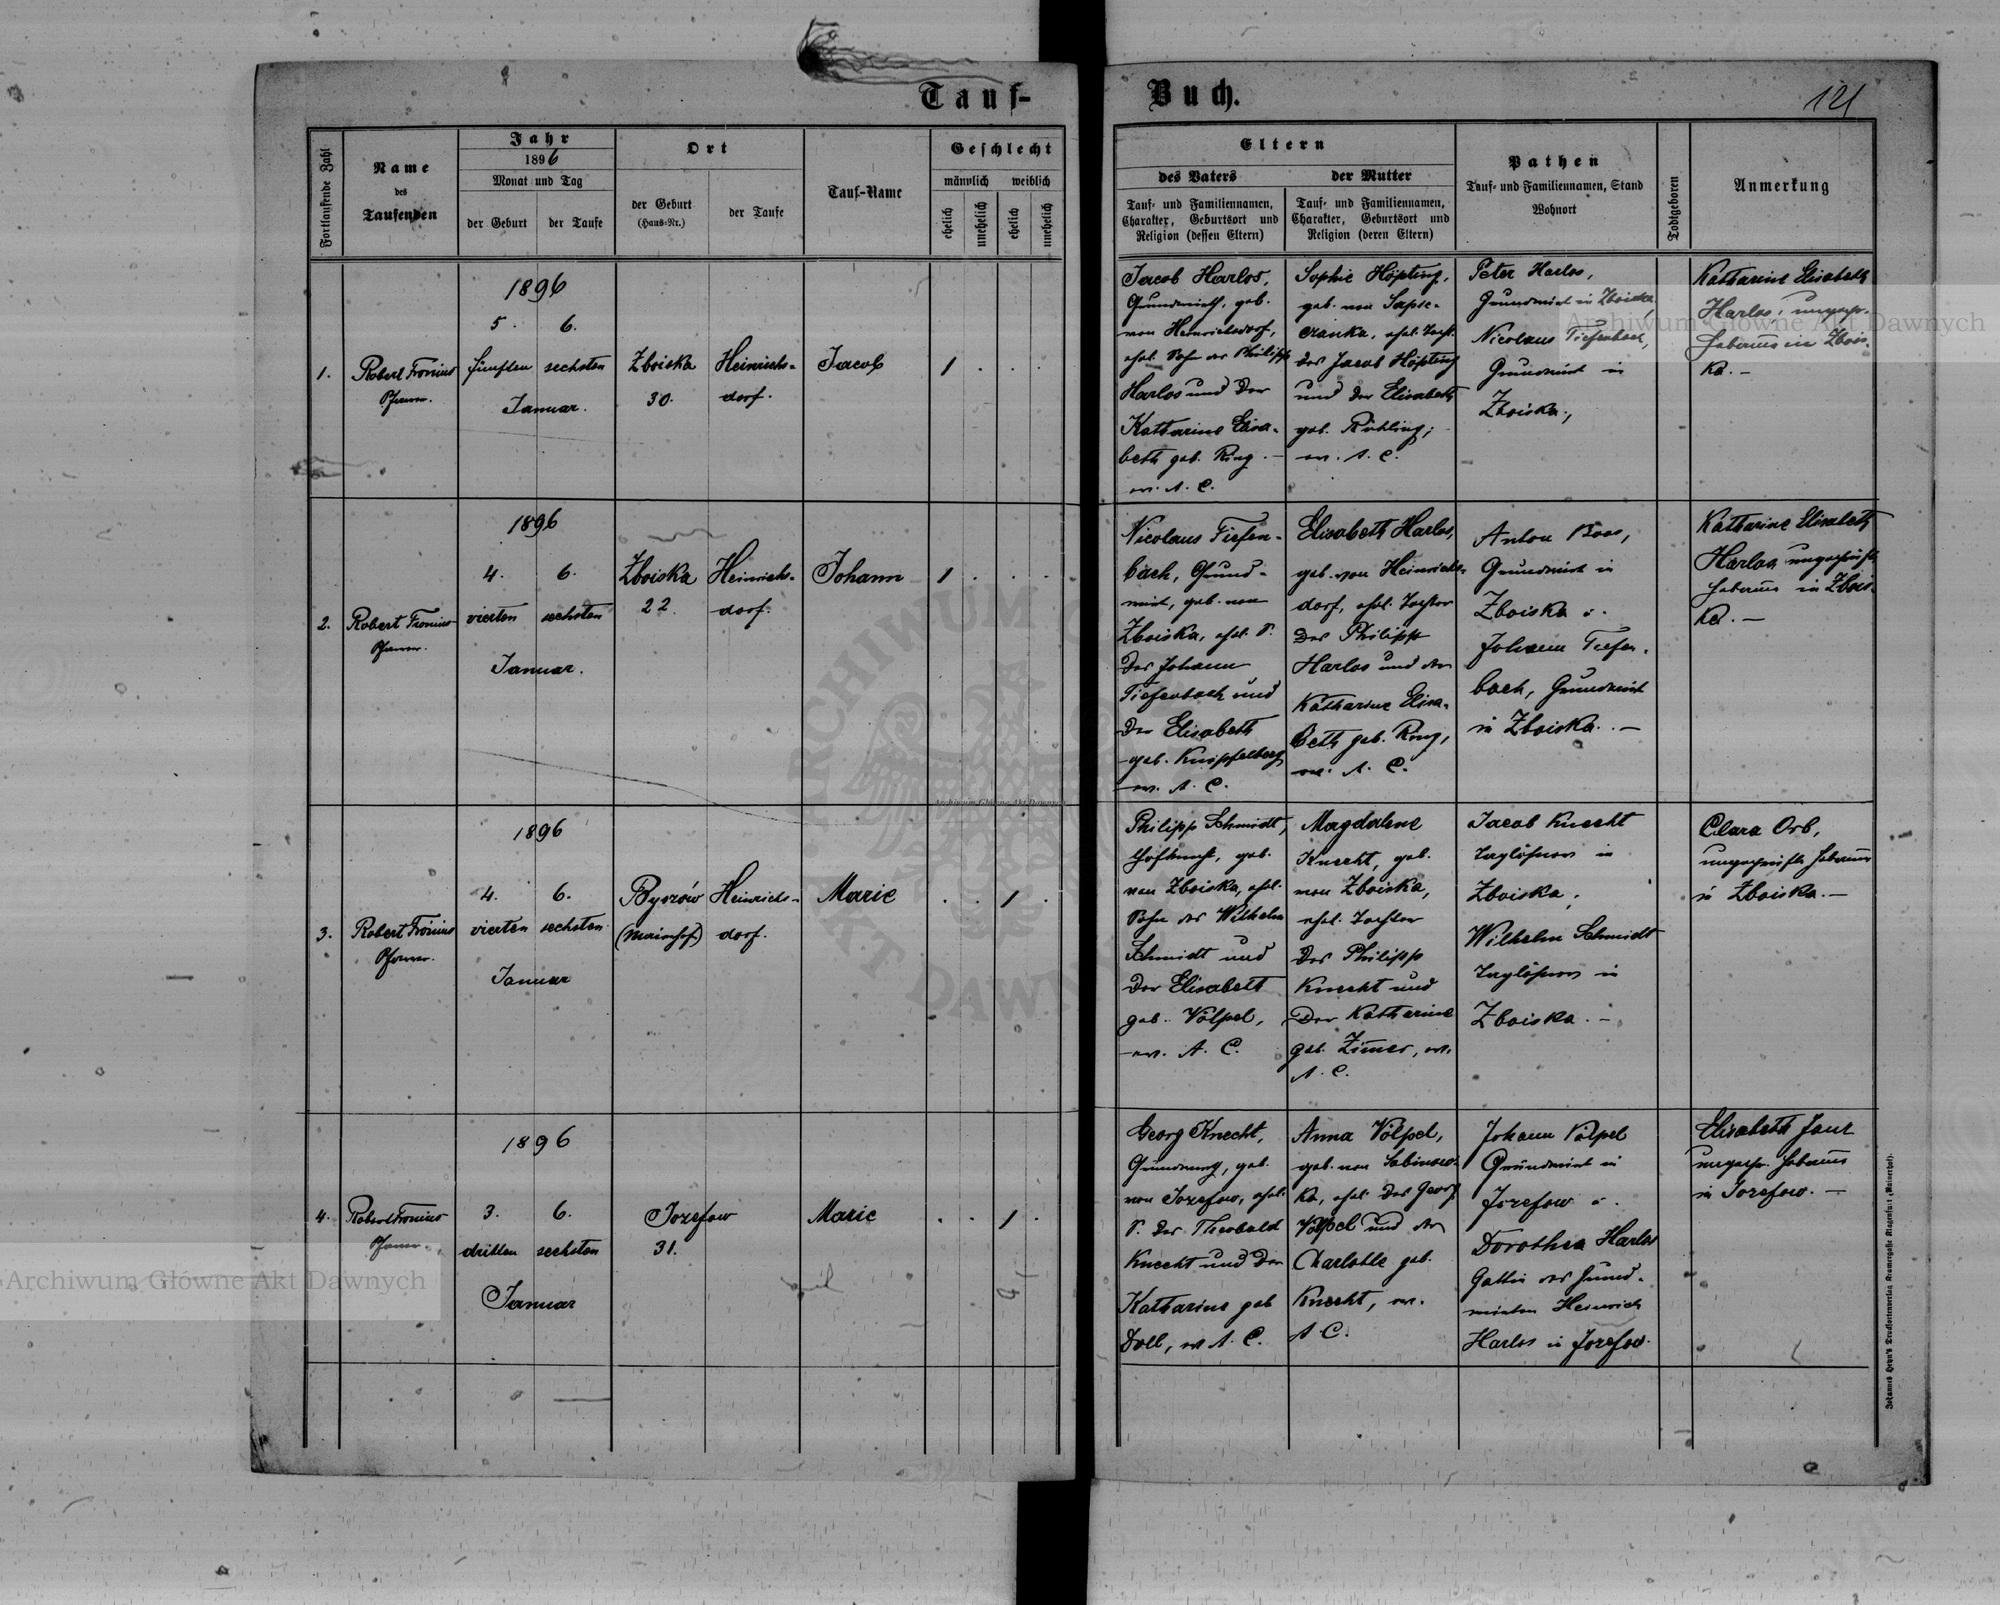 Tauf-
Buch.
121
Fortlaufende Zahl
Name
des
Taufenden
Jahr
1896
Monat und Tag
der Geburt
der Taufe
Ort
der Geburt
(Haus-Nr.)
der Taufe
Tauf-Name
Geschlecht
männlich
weiblich
ehelich
unehelich
ehelich
unehelich
Eltern
des Vaters
der Mutter
Tauf- und Familiennamen,
Charakter, Geburtsort und
Religion (dessen Eltern)
Tauf- und Familiennamen,
Charakter, Geburtsort und
Religion (deren Eltern)
Pathen
Tauf- und Familiennamen, Stand
Wohnort
Todtgeboren
Anmerkung
1.
Robert Fronius
Pfarrer.
1896
5. 6.
fünften sechsten
Januar.
Zboiska
30.
Heinrichs-
dorf.
Jacob
1 . . .
Jacob Harlos,
Grundwirth, geb.
von Heinrichsdorf,
ehel. Sohn des Philipp
Harlos und der
Katharine Elisa-
beth geb. Ring.
ev. A. C.
Sophie Höpting,
geb. von Sapie-
zanka, ehel. Tocht.
des Jacob Höpting
und der Elisabeth
geb. Rühling;
ev. A. C.
Peter Harlos,
Grundwirt in Zboiska,
Nicolaus Tiefenbach,
Grundwirt in
Zboiska.,
Katharine Elisabeth
Harlos, ungepr.
Hebamme in Zbois-
ka. –
2.
Robert Fronius
Pfarrer.
1896
4. 6.
vierten sechsten
Januar.
Zboiska
22.
Heinrichs-
dorf.
Johann
1 . . .
Nicolaus Tiefen-
bach, Grund-
wirt, geb. von
Zboiska, ehel. S.
des Johann
Tiefenbach und
der Elisabeth
geb. Knipfelberg
ev. A. C.
Elisabeth Harlos,
geb. von Heinrichs-
dorf, ehel. Tochter
des Philipp
Harlos und der
Katharine Elisa-
beth geb. Ring,
ev. A. C.
Anton Boos,
Grundwirt in
Zboiska u.
Johann Tiefen-
bach, Grundwirt
in Zboiska. –
Katharine Elisabeth
Harlos, ungeprüfte
Hebamme in Zbois-
ka. –
3.
Robert Fronius
Pfarrer.
1896
4. 6.
vierten sechsten
Januar
Byszów
(Maierhof)
Heinrichs-
dorf.
Marie
. . 1 .
Philipp Schmidt,
Hofknecht, geb.
von Zboiska, ehel.
Sohn des Wilhelm
Schmidt und
der Elisabeth
geb. Völpel,
ev. A. C.
Magdalene
Knecht, geb.
von Zboiska,
ehel. Tochter
des Philipp
Knecht und
der Katharine
geb. Zimer, ev.
A. C.
Jacob Knecht
Taglöhner in
Zboiska;
Wilhelm Schmidt
Taglöhner in
Zboiska. –
Clara Orb,
ungeprüfte Hebamme
in Zboiska. –
4.
Robert Fronius
Pfarrer.
1896
3. 6.
dritten sechsten
Januar
Jozefow
31.
Marie
. . 1 .
Georg Knecht,
geb.
von Jozefow, ehel.
S. des Theobald
Knecht und der
Katharine geb
Doll, ev A. C.
Anna Völpel,
geb. von Sabinow-
ka, ehel. des Georg
Völpel und der
Charlotte geb.
Knecht, ev.
A. C.
Johann Völpel
Grundwirt in
Jozefow u.
Dorothea Harlos
Gattin des Grund-
wirten Heinrich
Harlos in Jozefow.
Elisabeth Janz
ungepr. Hebamme
in Jozefow. –
Johannes Heyn's Drucksortenverlag Kramergasse Klagenfurt (Mainerhof).
Archiwum Główne Akt Dawnych
Archiwum Główne Akt Dawnych
Archiwum Główne Akt Dawnych